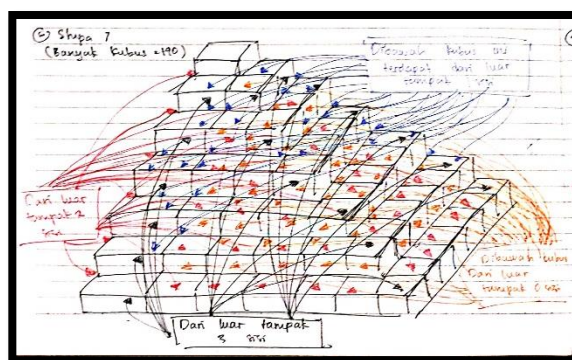 ② Stupa 7
(Banyak kubus = 140)
Dibawah kubus ini
terdapat dari luar
tampak sisi
Dari luar
tampak 2
sisi
Dibawah kubus
Dari luar
tampak 0 sisi
Dari luar tampak
3 sisi